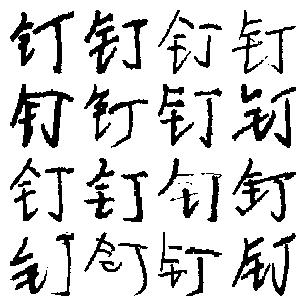 钉钉钉钉
钉钉钉钉
钉钉钉钉
钉钉钉钉